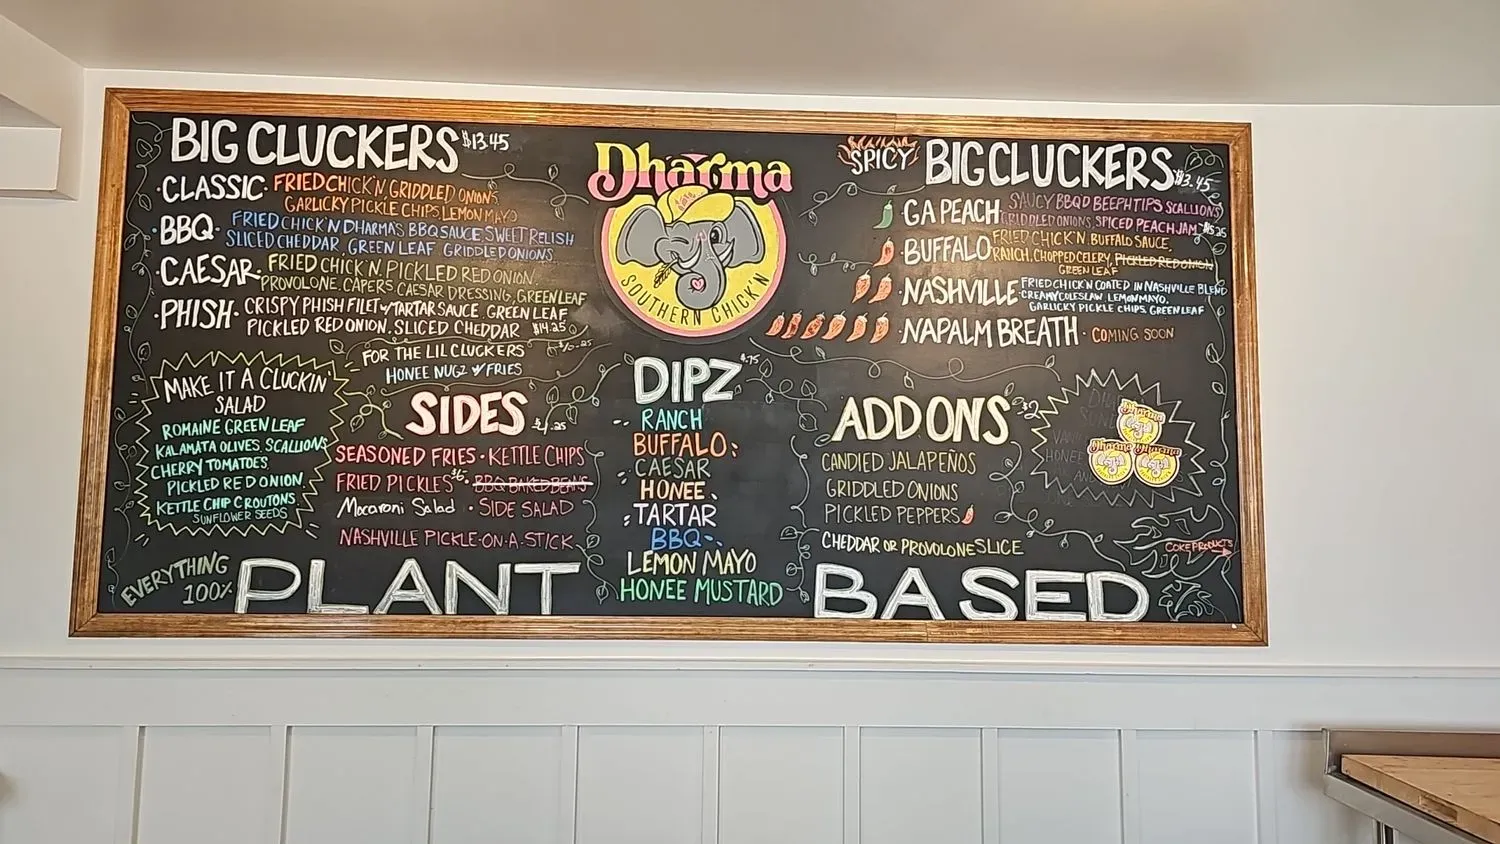 BIG CLUCKERS $13.45
CLASSIC· FRIED CHICK'N GRIDDLED ONIONS
GARLICKY PICKLE CHIPS LEMON MAYO
BBQ· FRIED CHICK'N DHARMA'S BBQ SAUCE SWEET RELISH
SLICED CHEDDAR GREEN LEAF GRIDDLED ONIONS
CAESAR· FRIED CHICK'N. PICKLED RED ONION.
PROVOLONE. CAPERS. CAESAR DRESSING, GREEN LEAF
PHISH· CRISPY PHISH FILET w/ TARTAR SAUCE. GREEN LEAF
PICKLED RED ONION. SLICED CHEDDAR $14.25
FOR THE LIL CLUCKERS
HONEE NUGZ w/ FRIES
MAKE IT A CLUCKIN'
SALAD
ROMAINE GREEN LEAF
KALAMATA OLIVES. SCALLIONS
CHERRY TOMATOES
PICKLED RED ONION
KETTLE CHIP CROUTONS
SUNFLOWER SEEDS
SIDES
SEASONED FRIES · KETTLE CHIPS
FRIED PICKLES · BBQ BAKED BEANS
Macaroni Salad · SIDE SALAD
NASHVILLE PICKLE-ON-A-STICK
Dharma
SOUTHERN CHICK'N
DIPZ $.75
RANCH
BUFFALO
CAESAR
HONEE
TARTAR
BBQ
LEMON MAYO
HONEE MUSTARD
SPICY BIG CLUCKERS
GA PEACH SAUCY BBQ'D BEEPH TIPS SCALLIONS
GRIDDLED ONIONS, SPICED PEACH JAM
BUFFALO FRIED CHICK'N. BUFFALO SAUCE,
RANCH. CHOPPED CELERY, PICKLED RED ONION
GREEN LEAF
NASHVILLE FRIED CHICK'N COATED IN NASHVILLE BLEND
CREAMY COLESLAW LEMON MAYO,
GARLICKY PICKLE CHIPS GREEN LEAF
NAPALM BREATH · COMING SOON
ADD ONS $2
CANDIED JALAPEÑOS
GRIDDLED ONIONS
PICKLED PEPPERS
CHEDDAR OR PROVOLONE SLICE
Dharma
Dharma Dharma
COKE PRODUCTS
EVERYTHING
100% PLANT BASED